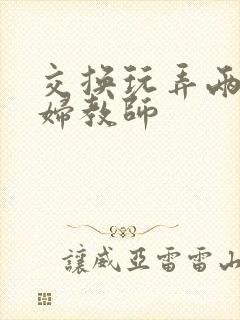 交换玩弄两
婦教師
讓威亞雷雷山